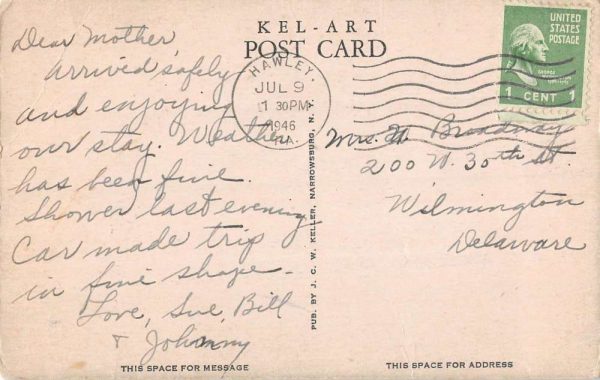 KEL-ART
POST CARD
UNITED
STATES
POSTAGE
1 CENT 1
HAWLEY
JUL 9
1 30PM
1946
PA.
Dear Mother
Arrived safely
and enjoying
our stay. Weather
has been fine.
Shower last evening
Car made trip
in fine shape -
Love, Sue, Bill
& Johnny
PUB. BY J. C. W. KELLER, NARROWSBURG, N. Y.
Mrs. W. Broadway
200 W. 30th St.
Wilmington
Delaware
THIS SPACE FOR MESSAGE
THIS SPACE FOR ADDRESS